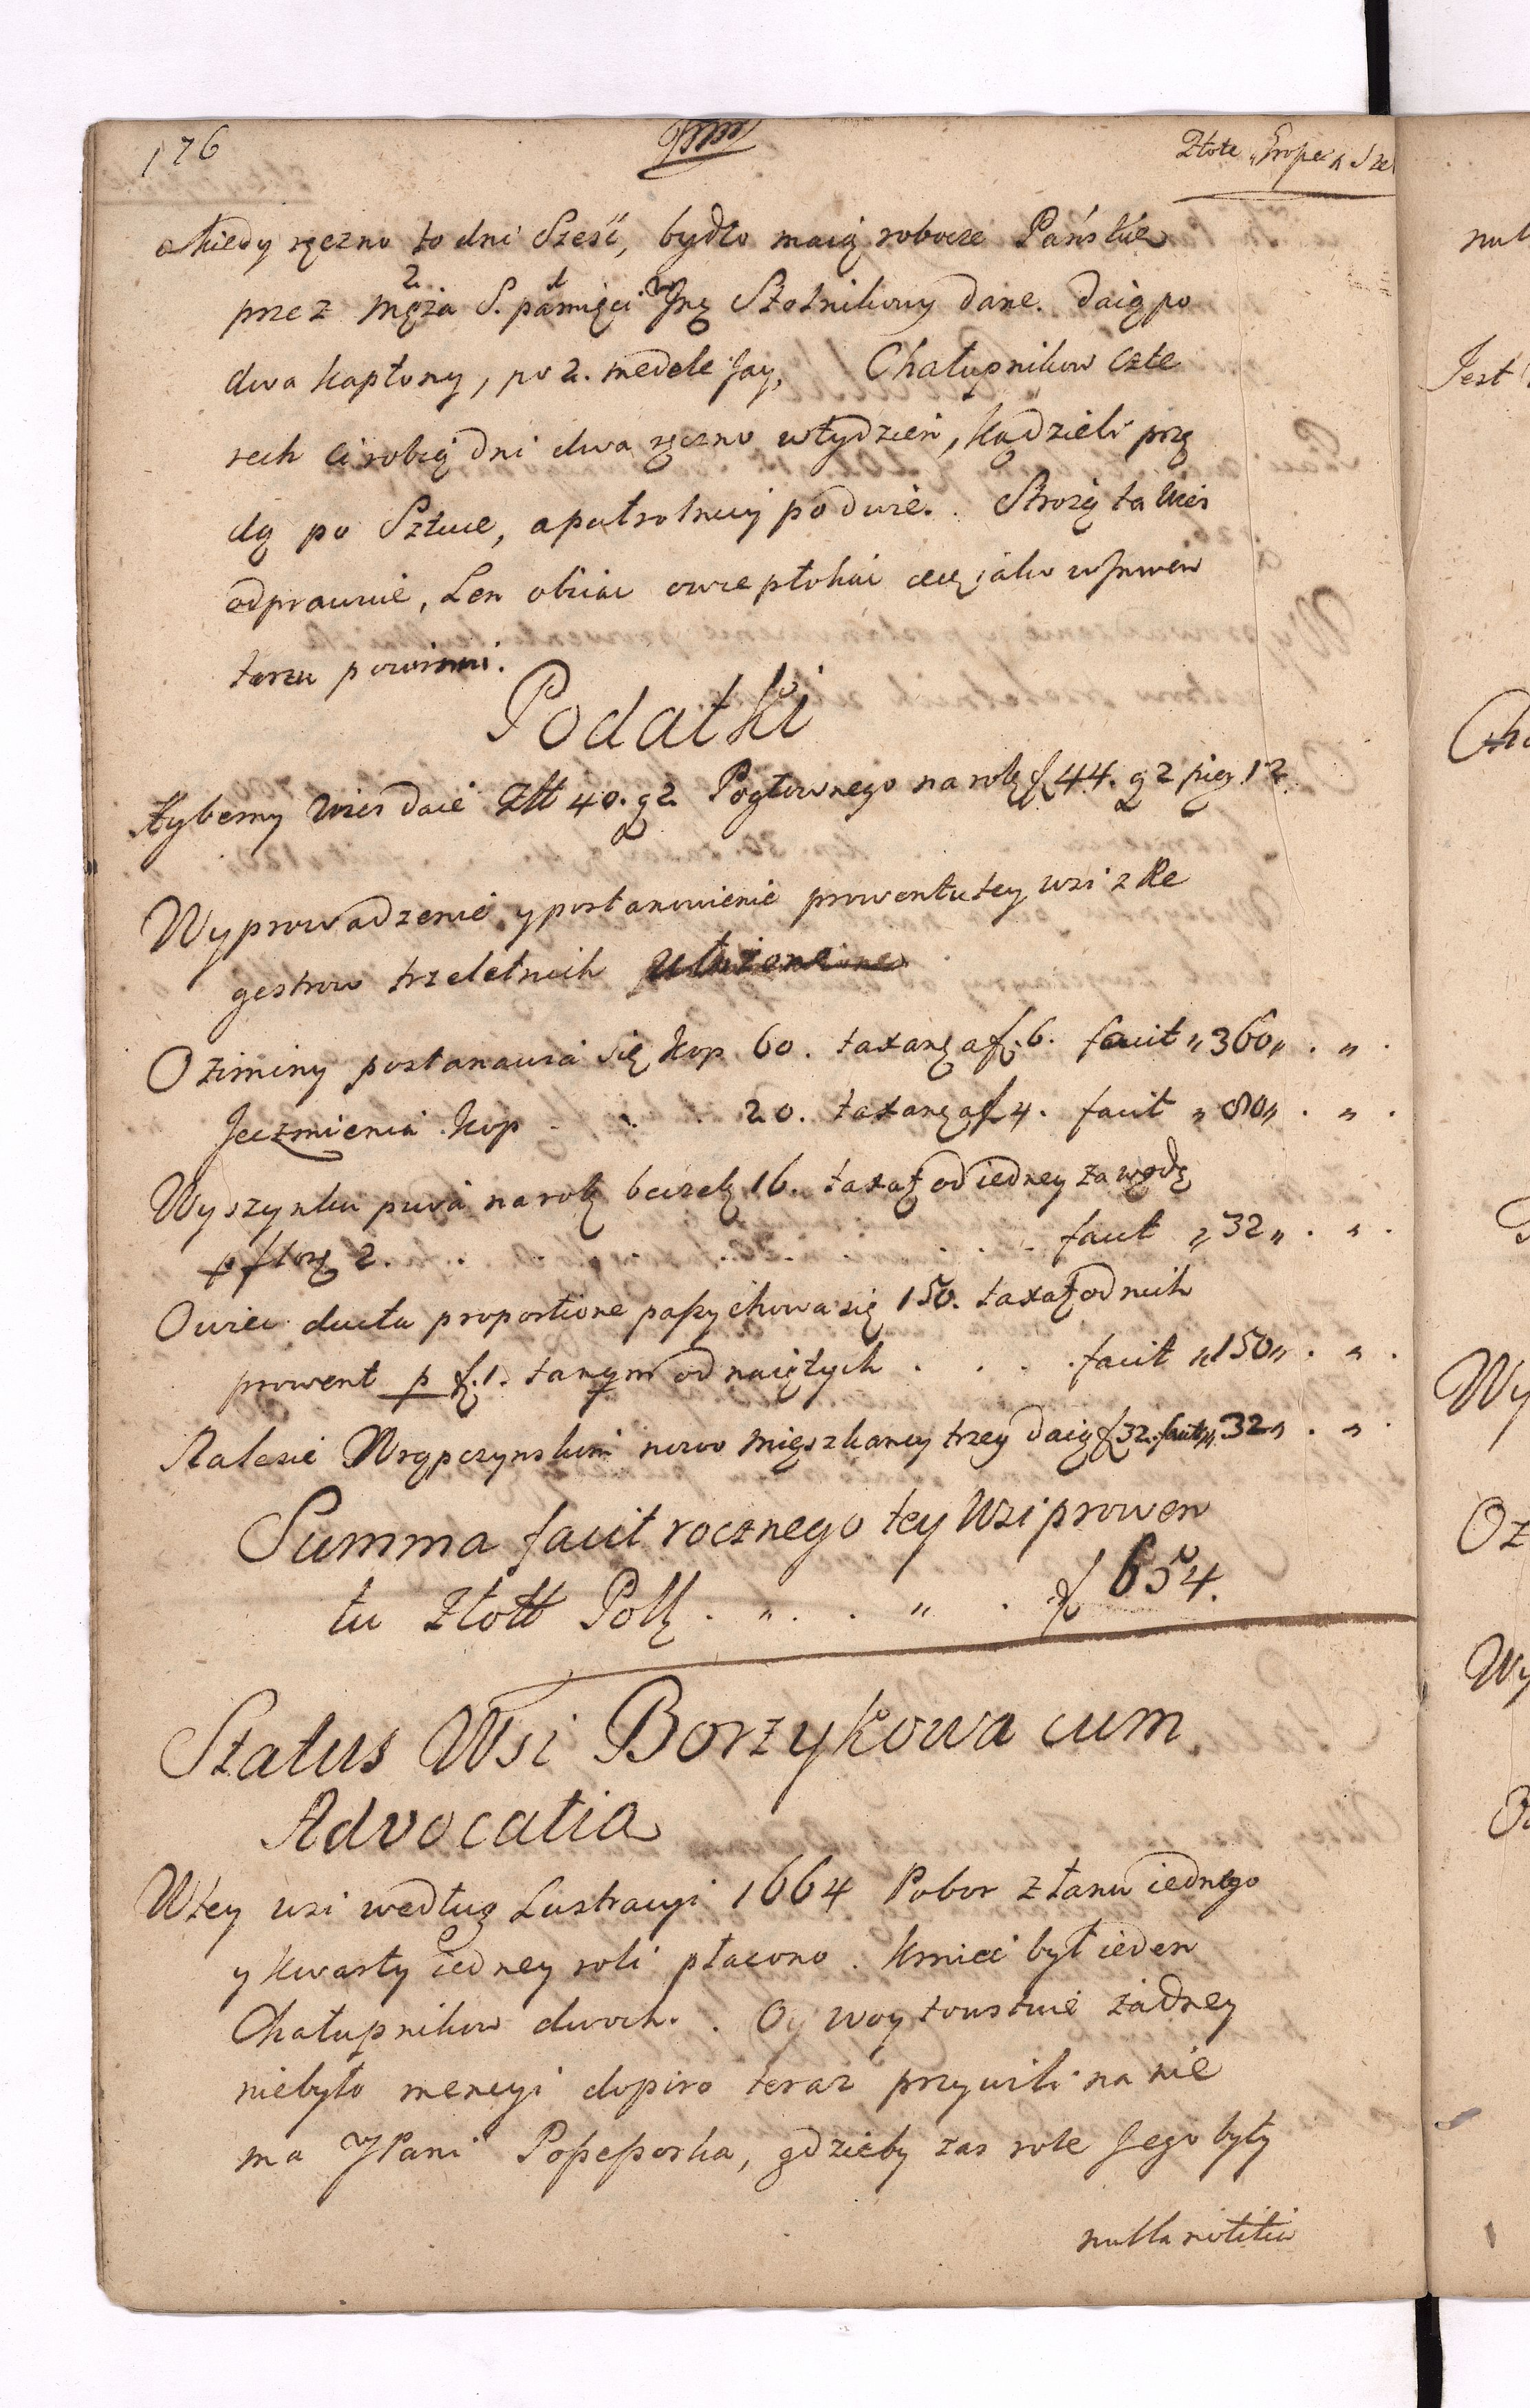 176
Złote Grosze Sze
a kiedy ręczno to dni Sześć, bydło maią robocze Pańskie
przez Męża S. pamięci Jmę Stolnikowy dane. daią po
dwa kapłony, po 2. medele Jay, Chałupnikow czte
rech ci robią dni dwa ręczno w tydzień, kądzieli przę
dą po Sztuce, a potrolney po dwie. Strożę ta wieś
odprawuie, Len obiac owce płokac etc jako w Inwen
tarzu powinni.
Podatki
Hyberny wies daie Złł 40. g 2. Pogłownego na rolę f 44. g 2 pięg 12
Wyprowadzenie, y postanowienie prowentu tey wsi z Re
gestrow trzeletnich
Oziminy postanawia się kop 60. taxanę a f. 6. facit „ 360 „ . „ .
Jęczmienia kop . . . 20. taxanę a f 4. facit „ 80 „ . „ .
Wyszynku piwa na rolę beczek 16. taxaę od iedney za wodę
p flor 2. . . . . . . . . facit „ 32 „ . „ .
Owiec ducta proportione paszy chowa się 150. taxaę od nich
prowent p f. 1. tanqm od naiętych . . . . facit „ 150 „ . „ .
Halesie Wrąpczynskim nowo mięszkancy trzey daią f 32. facit „ 32 „ . „ .
Summa facit rocznego tey Wsi prowen
tu Złott Polę . „ . . „ . f 654.
Status Wsi Borzykowa cum
Advocatia
W tey wsi według Lustracyi 1664 Pobor z łanu iednego
y kwarty iedney roli płacono. Kmieć był ieden
Chałupnikow dwoch. . Oy woytoustwie żadney
niebyło mencyi dopiro teraz przywili na nie
ma JPani Popeposka, gdzieby zas role Jego były
nulla notitia